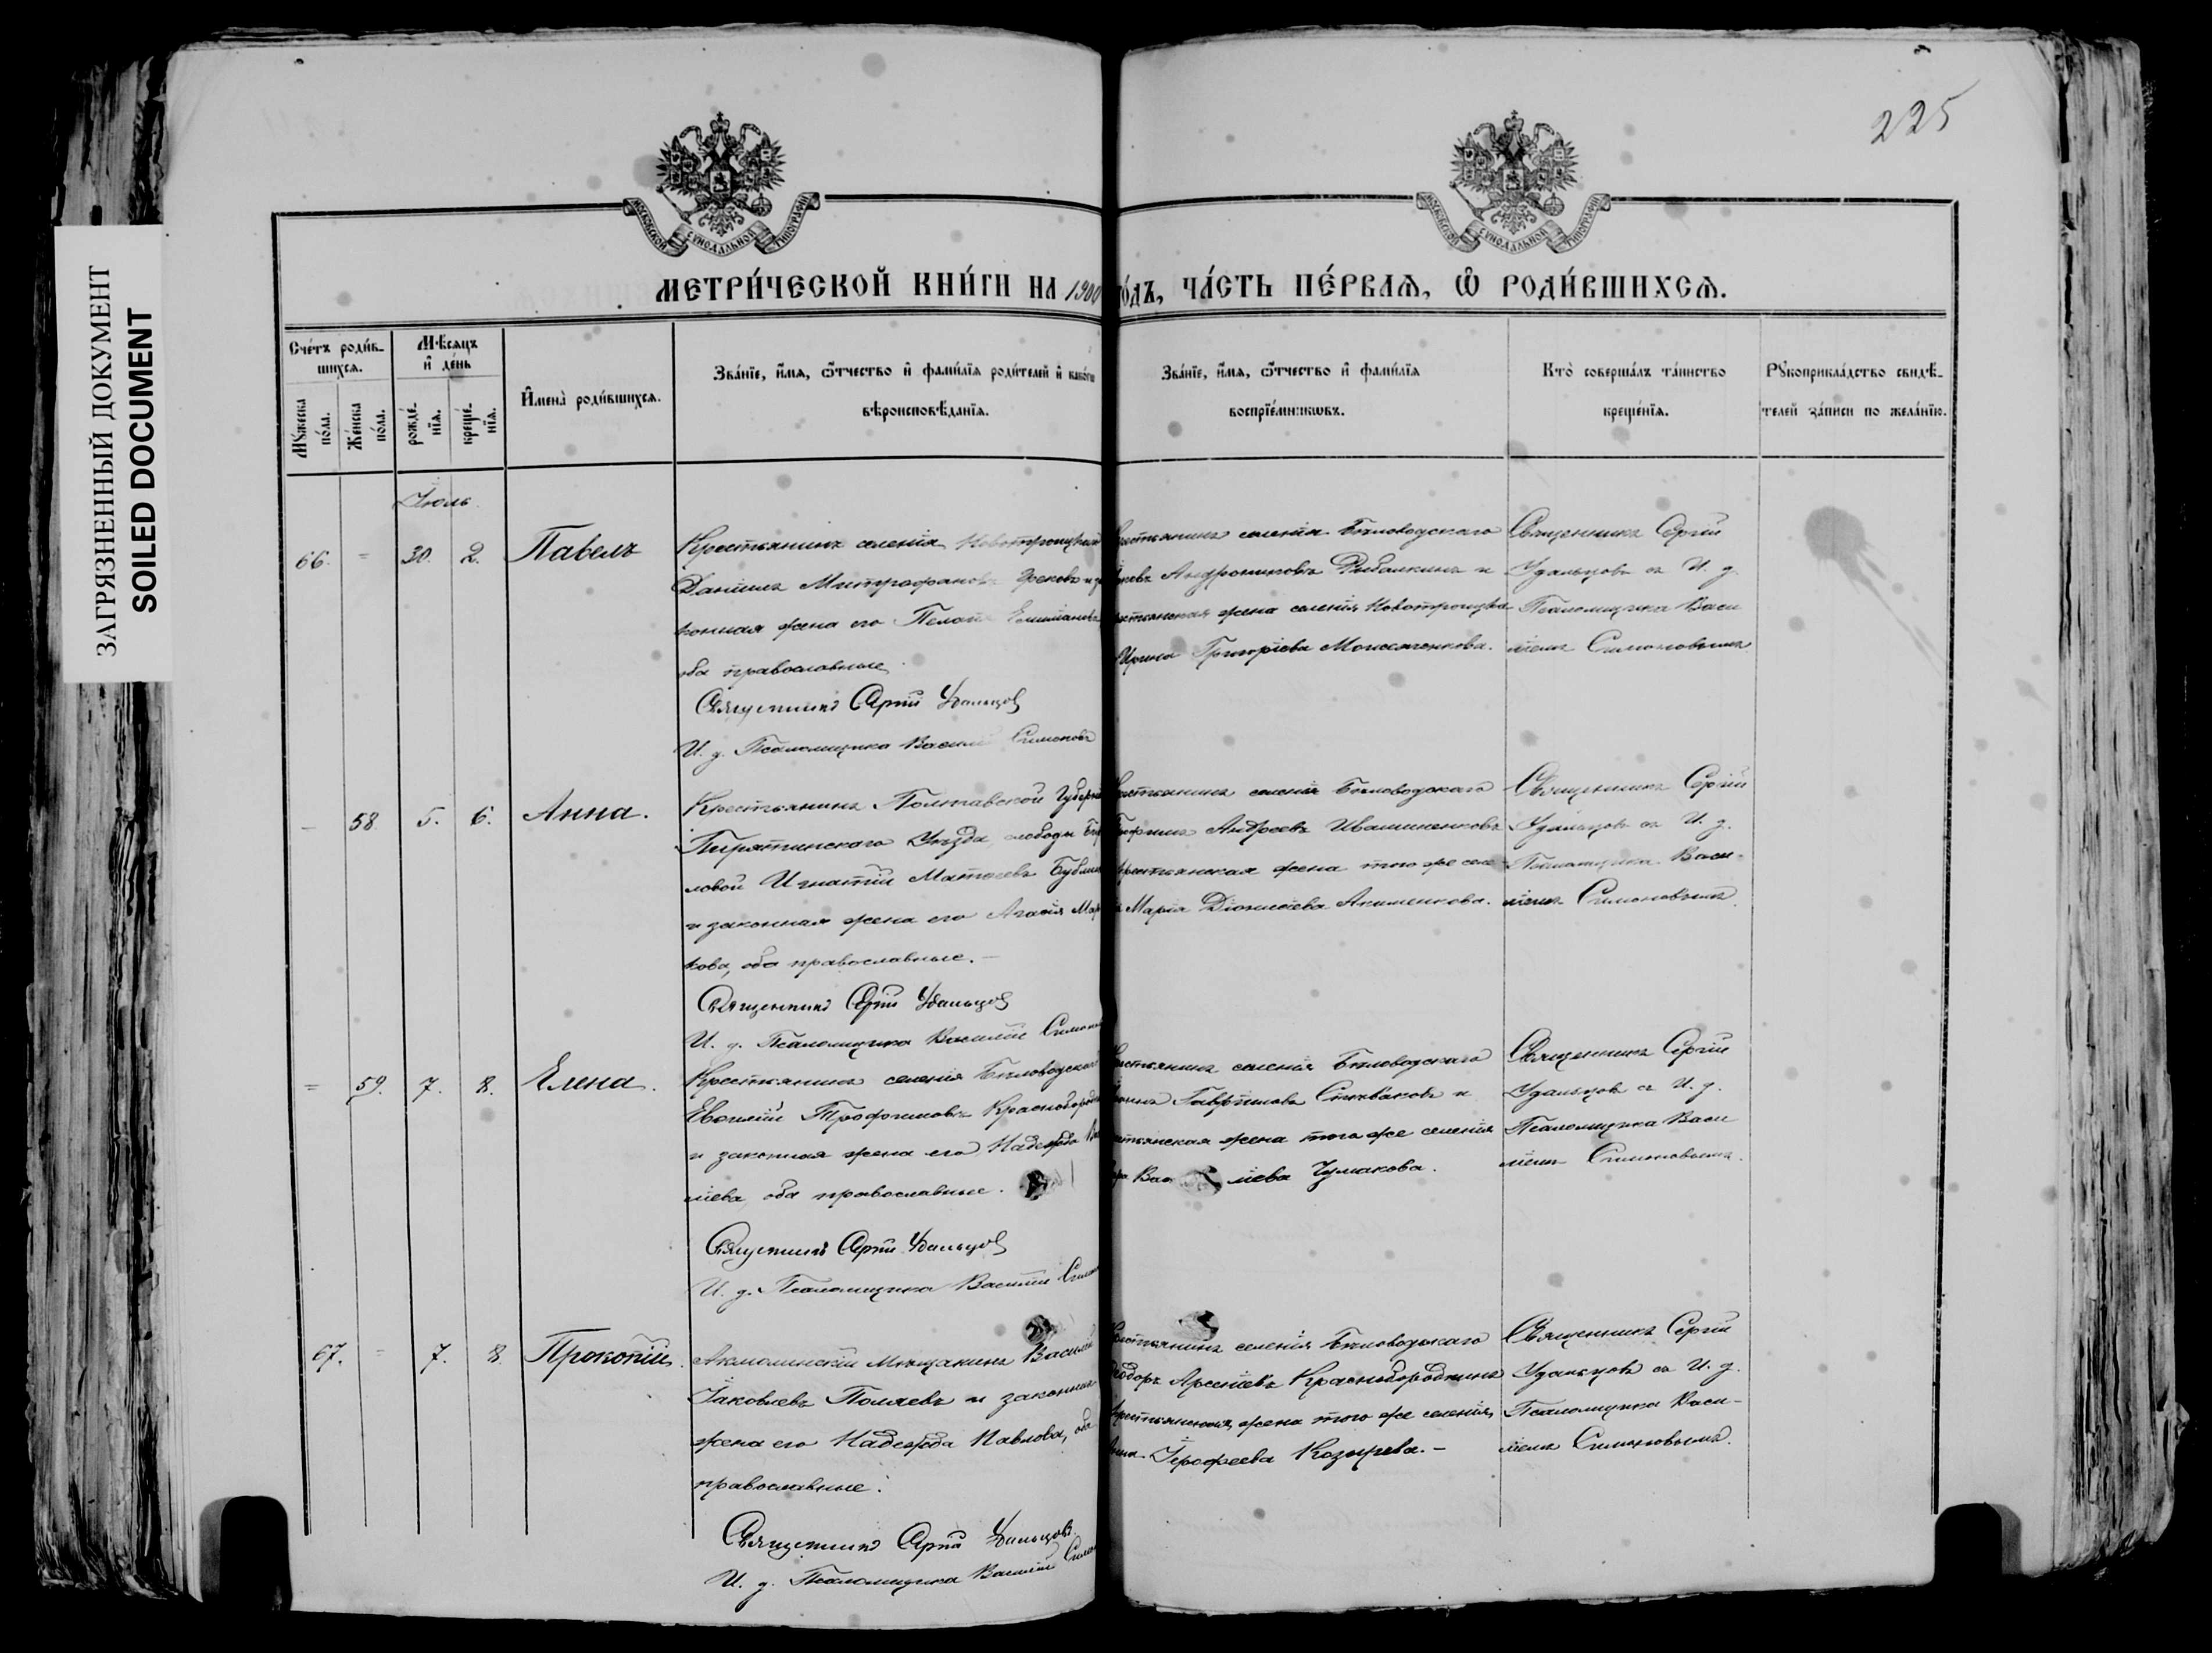 225
ЗАГРЯЗНЕННЫЙ ДОКУМЕНТ
SOILED DOCUMENT
МОСКОВСКОЙ СУНОДАЛЬНОЙ ТИПОГРАФІИ
МОСКОВСКОЙ СУНОДАЛЬНОЙ ТИПОГРАФІИ
МЕТРИ́ЧЕСКОЙ КНИ́ГИ НА 1900 ГО́ДЪ, ЧА́СТЬ ПЕ́РВАЯ, Ѡ҆ РОДИ́ВШИХСЯ.
Сче́тъ роди́в-
шихся.
Му́жеска по́ла.
Же́нска по́ла.
Мѣ́сяцъ и҆ де́нь
рожде́-нїя.
креще́-нїя.
И҆мена̀ роди́вшихся.
Зва́нїе, и҆́мя, ѻ҆́тчество и҆ фами́лїя роди́телей и҆ како́гѡ
вѣроисповѣ́данїя.
Зва́нїе, и҆́мя, ѻ҆́тчество и҆ фами́лїя
воспрїе́мникѡвъ.
Кто̀ соверша́лъ та́инство
креще́нїя.
Рꙋкоприкла́дство свидѣ́-
телей за́писи по жела́нїю.
Іюль.
66. = 30. 2. Павелъ
Крестьянинъ селенія Новотроицкаго
Даніилъ Митрофановъ и за
конная жена его
оба православные.
Священникъ Сергій Удальцов
И. д. Псаломщика Василій Симоновъ
Крестьянинъ селенія Бѣловодскаго
Андрониковъ Рыбалкинъ и
крестьянская жена селенія Новотроицка
Ирина Григоріева
Священникъ Сергій
Удальцовъ съ И. д.
Псаломщика Васи
ліемъ Симоновымъ
– 58. 5. 6. Анна.
Крестьянинъ Полтавской Губерніи
Пирятинскаго Уѣзда, слободы
ловой Игнатій
и законная жена его Агафія
кова, оба православные. –
Священникъ Сергій Удальцов
И. д. Псаломщика Василій Симонов
Крестьянинъ селенія Бѣловодскаго
Андреевъ Ивашиненковъ
Крестьянская жена того же селе
Марія Діонисіева Акименкова.
Священникъ Сергій
Удальцовъ съ И. д.
Псаломщика Васи-
ліемъ Симоновымъ.
= 59. 7. 8. Елена.
Крестьянинъ селенія Бѣловодскаго
Трофимовъ
и законная жена его Надежда
ліева, оба православные.
Священникъ Сергій Удальцов
И. д. Псаломщика Василій
Крестьянинъ селенія Бѣловодскаго
Гавріиловъ и
крестьянская жена того же селенія
Вас ліева Чумакова.
Священникъ Сергій
Удальцовъ съ И. д.
Псаломщика Васи
ліемъ Симоновымъ.
67. = 7. 8. Прокопій.
Акмолинскій Мѣщанинъ Василій
Іаковлевъ Поляевъ и законная
жена его Надежда Павлова, оба
православные.
Священникъ Сергій Удальцовъ.
И. д. Псаломщика Василій
Крестьянинъ селенія Бѣловодскаго
Ѳеодоръ Арсеніевъ Краснобородкинъ
Крестьянская жена того же селенія,
Іерофеева Козырева. –
Священникъ Сергій
Удальцовъ съ И. д.
Псаломщика Васи-
ліемъ Симоновымъ.